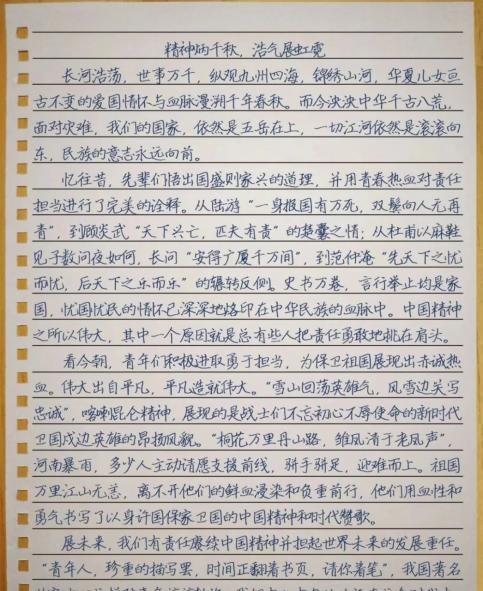 精神炳千秋，浩气展虹霓
长河浩荡，世事万千，纵观九州四海，锦绣山河，华夏儿女亘
古不变的爱国情怀与血脉漫溯千年春秋。而今泱泱中华千古八荒，
面对灾难，我们的国家，依然是五岳在上，一切江河依然是滚滚向
东，民族的意志永远向前。
忆往昔，先辈们悟出国盛则家兴的道理，并用青春热血对责任
担当进行了完美的诠释。从陆游“一身报国有万死，双鬓向人无再
青”，到顾炎武“天下兴亡，匹夫有责”的楚囊之情；从杜甫以麻鞋
见子数问夜如何，长问“安得广厦千万间”，到范仲淹“先天下之忧
而忧，后天下之乐而乐”的辗转反侧。史书万卷，言行举止均是家
国，忧国忧民的情怀已深深地烙印在中华民族的血脉中。中国精神
之所以伟大，其中一个原因就是总有些人把责任勇敢地挑在肩头。
看今朝，青年们积极进取勇于担当，为保卫祖国展现出赤诚热
血。伟大出自平凡，平凡造就伟大。“雪山回荡英雄气，风雪边关写
忠诚”，喀喇昆仑精神，展现的是战士们不忘初心不辱使命的新时代
卫国戍边英雄的昂扬风貌。“桐花万里丹山路，雏凤清于老凤声”，
河南暴雨，多少人主动请愿支援前线，骈手骈足，迎难而上。祖国
万里江山无恙，离不开他们的鲜血浸染和负重前行，他们用血性和
勇气书写了以身许国保家卫国的中国精神和时代赞歌。
展未来，我们有责任赓续中国精神并担起世界未来的发展重任。
“青年人，珍重的描写罢，时间正翻着书页，请你着笔”，我国著名